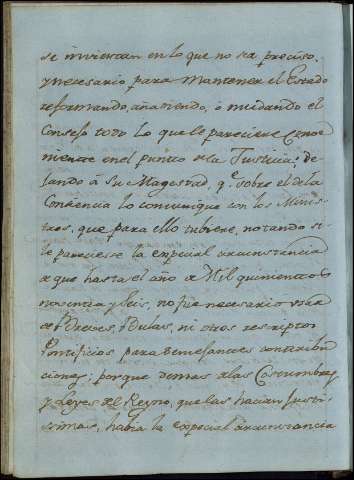 se inviertan en lo que no sea preciso,
y necesario para mantener el Estado
reformando, añadiendo, ó mudando el
Consejo todo lo que le pareciere conve
niente en el punto de la Justicia; de
jando á Su Magestad, q.e sobre el de la
Conciencia lo comunique con los Minis
tros, que para ello tubiere, notando si
le pareciese la especial circunstancia
de que hasta el año de Mil quinientos
noventa y seis, no fue necesario usar
de Breves, Bulas, ni otros rescriptos
Pontificios para semejantes contribu
ciones; porque demas de las Costumbres
y Leyes del Reyno, que las hacian Justi
simas, habia la especial circunstancia